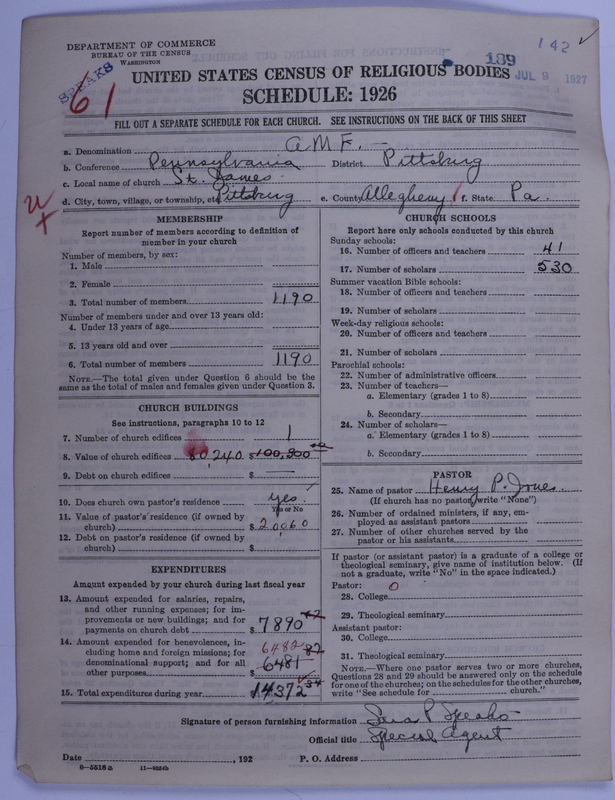 DEPARTMENT OF COMMERCE
BUREAU OF THE CENSUS
WASHINGTON
SPEAKS
61
142
189
JUL 9 1927
UNITED STATES CENSUS OF RELIGIOUS BODIES
SCHEDULE: 1926
FILL OUT A SEPARATE SCHEDULE FOR EACH CHURCH. SEE INSTRUCTIONS ON THE BACK OF THIS SHEET
a. Denomination A M E.
b. Conference Pennsylvania District Pittsburg
c. Local name of church St. James
d. City, town, village, or township, etc. Pittsburg e. County Allegheny f. State Pa.
MEMBERSHIP
Report number of members according to definition of
member in your church
Number of members, by sex:
1. Male
2. Female
3. Total number of members 1190
Number of members under and over 13 years old:
4. Under 13 years of age
5. 13 years old and over
6. Total number of members 1190
NOTE.—The total given under Question 6 should be the
same as the total of males and females given under Question 3.
CHURCH BUILDINGS
See instructions, paragraphs 10 to 12
7. Number of church edifices 1
8. Value of church edifices 80240. $100,300 00
9. Debt on church edifices $
10. Does church own pastor's residence yes.
Yes or No
11. Value of pastor's residence (if owned by
church) $20060
12. Debt on pastor's residence (if owned by
church) $
EXPENDITURES
Amount expended by your church during last fiscal year
13. Amount expended for salaries, repairs,
and other running expenses; for im-
provements or new buildings; and for
payments on church debt $7890 42
14. Amount expended for benevolences, in-
cluding home and foreign missions; for
denominational support; and for all
other purposes $6481 82
6482
15. Total expenditures during year 14372 34
CHURCH SCHOOLS
Report here only schools conducted by this church
Sunday schools:
16. Number of officers and teachers 41
17. Number of scholars 530
Summer vacation Bible schools:
18. Number of officers and teachers
19. Number of scholars
Week-day religious schools:
20. Number of officers and teachers
21. Number of scholars
Parochial schools:
22. Number of administrative officers
23. Number of teachers—
a. Elementary (grades 1 to 8)
b. Secondary
24. Number of scholars—
a. Elementary (grades 1 to 8)
b. Secondary
PASTOR
25. Name of pastor Henry P. Jones
(If church has no pastor, write "None")
26. Number of ordained ministers, if any, em-
ployed as assistant pastors
27. Number of other churches served by the
pastor or his assistants
If pastor (or assistant pastor) is a graduate of a college or
theological seminary, give name of institution below. (If
not a graduate, write "No" in the space indicated.)
Pastor: 0
28. College
29. Theological seminary
Assistant pastor:
30. College
31. Theological seminary
NOTE.—Where one pastor serves two or more churches,
Questions 28 and 29 should be answered only on the schedule
for one of the churches; on the schedules for the other churches,
write "See schedule for church."
Signature of person furnishing information P. Speaks
Official title Special Agent
Date , 192 P. O. Address
8—5518 a 11—9224b